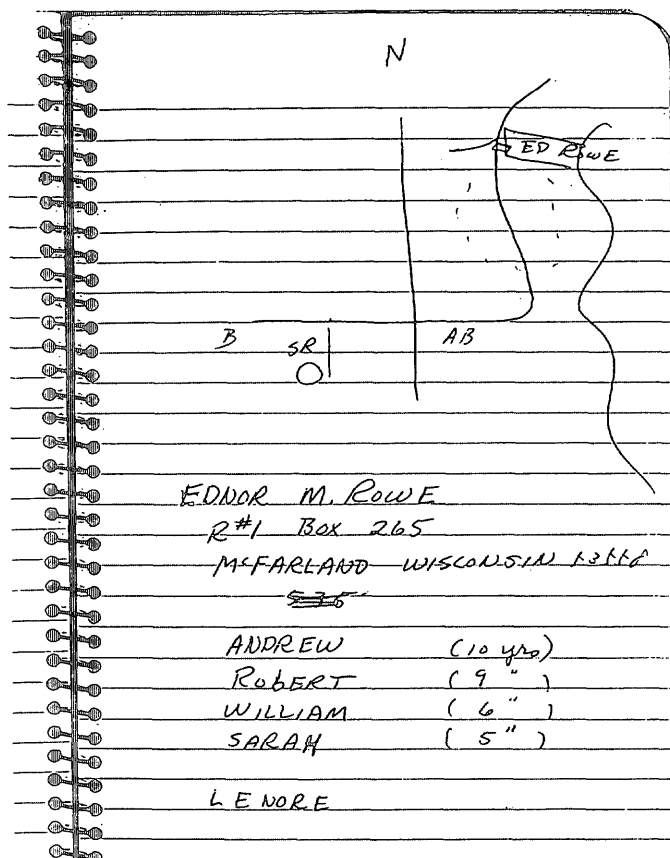 N
ED ROWE
B
SR
AB
EDNOR M. ROWE
R#1 BOX 265
McFARLAND WISCONSIN
ANDREW (10 yrs)
ROBERT ( 9 " )
WILLIAM ( 6 " )
SARAH ( 5 " )
LENORE